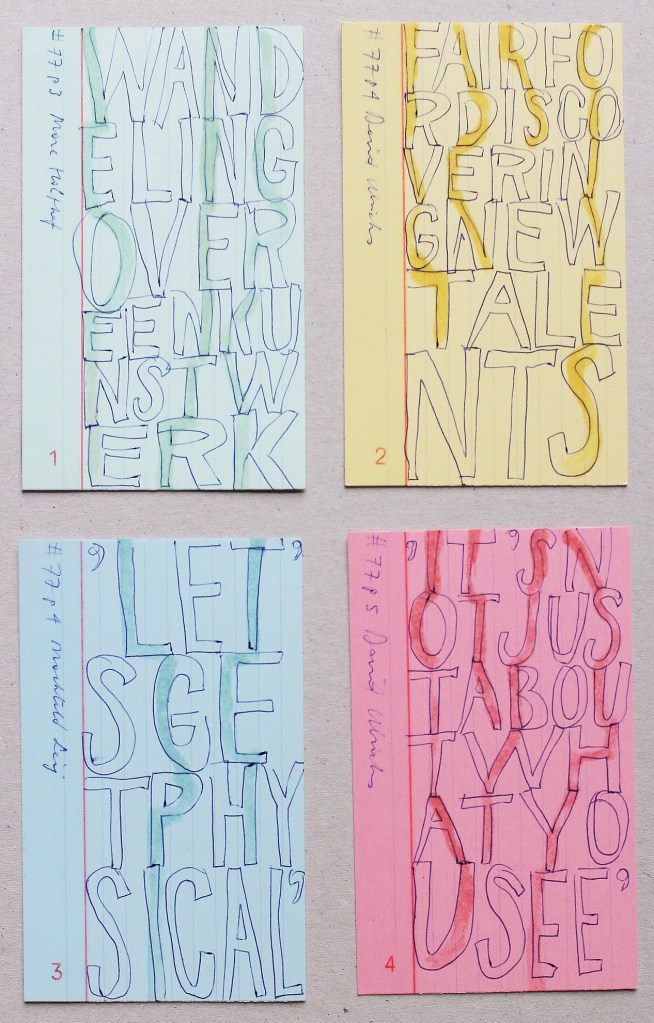 #77 p3 Marc Holthof
IWAND
ELING
OVER
EENKU
NSTW
ERK
1
#77 p4 David Ulrichs
FAIRFO
RDISCO
VERIN
GNEW
TALE
NTS
2
#77 p4 Machteld Leij
'LET'
SGE
TPHY
SICAL'
3
#77 p5 David Ulrichs
'IT'SN
OTJUS
TABOU
TWH
ATYO
USEE'
4